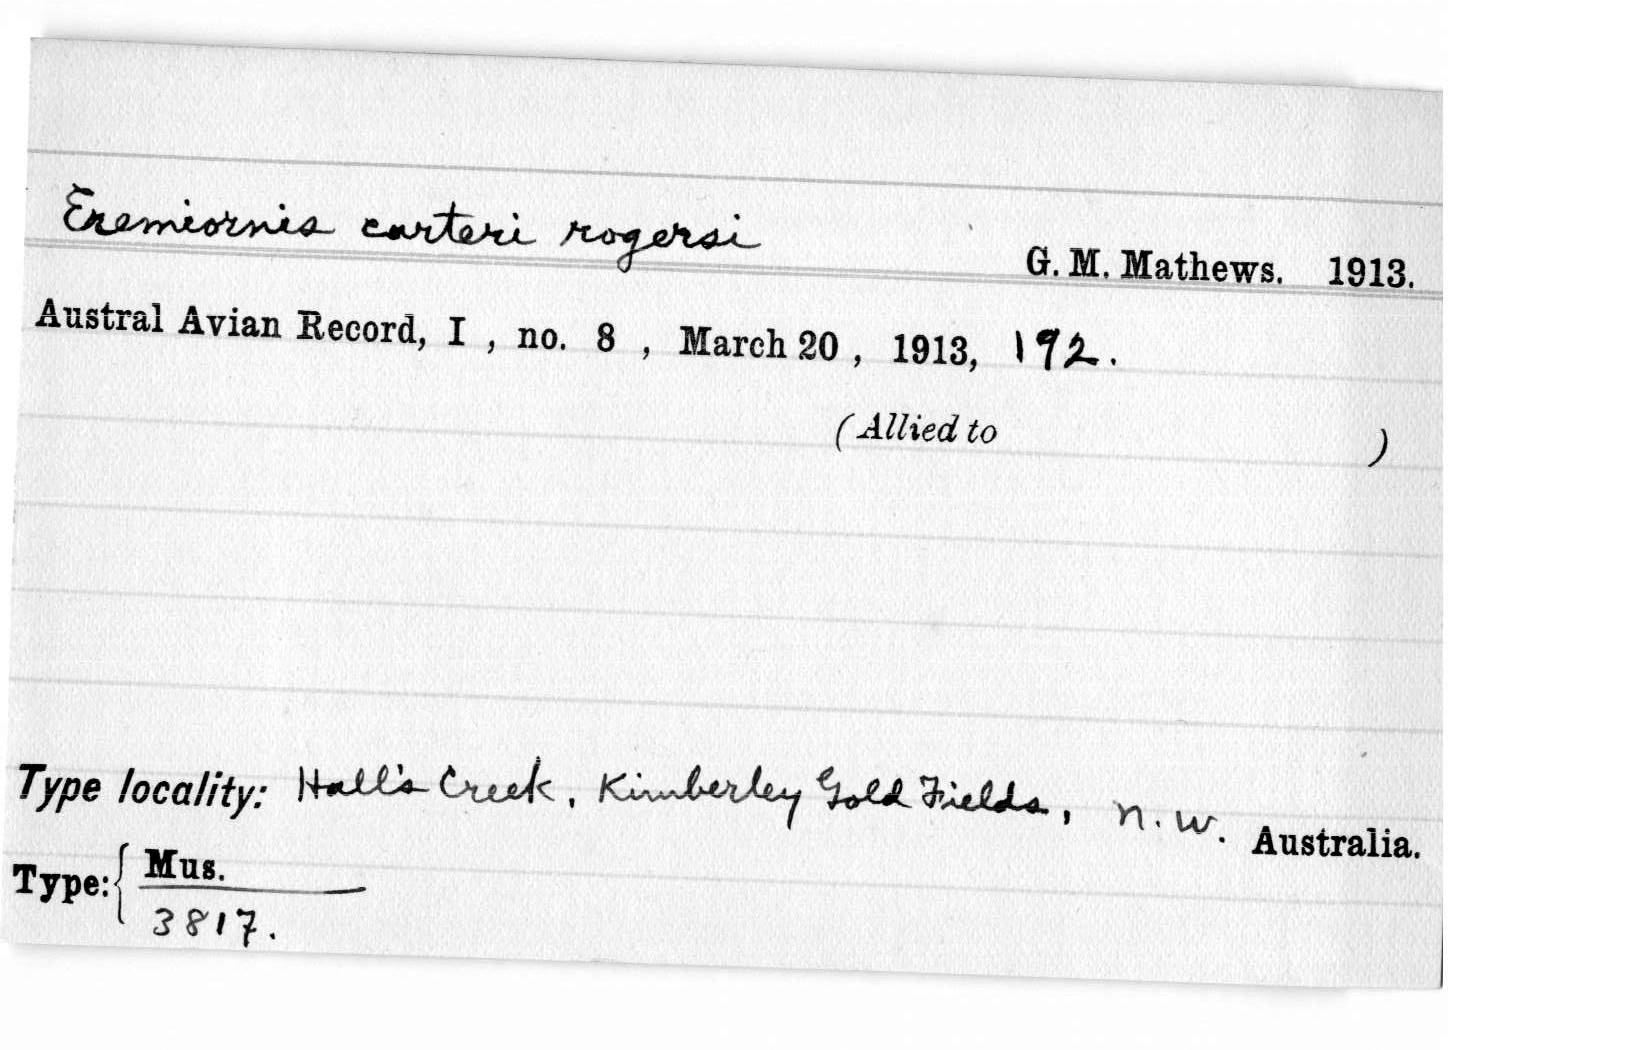 Eremiornis carteri rogersi
G. M. Mathews. 1913.
Austral Avian Record, I , no. 8 , March 20 , 1913, 192.
(Allied to )
Type locality: Hall's Creek, Kimberley Gold Fields, N.W. Australia.
Type: { Mus.
3817.